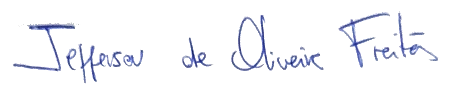 Jefferson de Oliveira Freitas